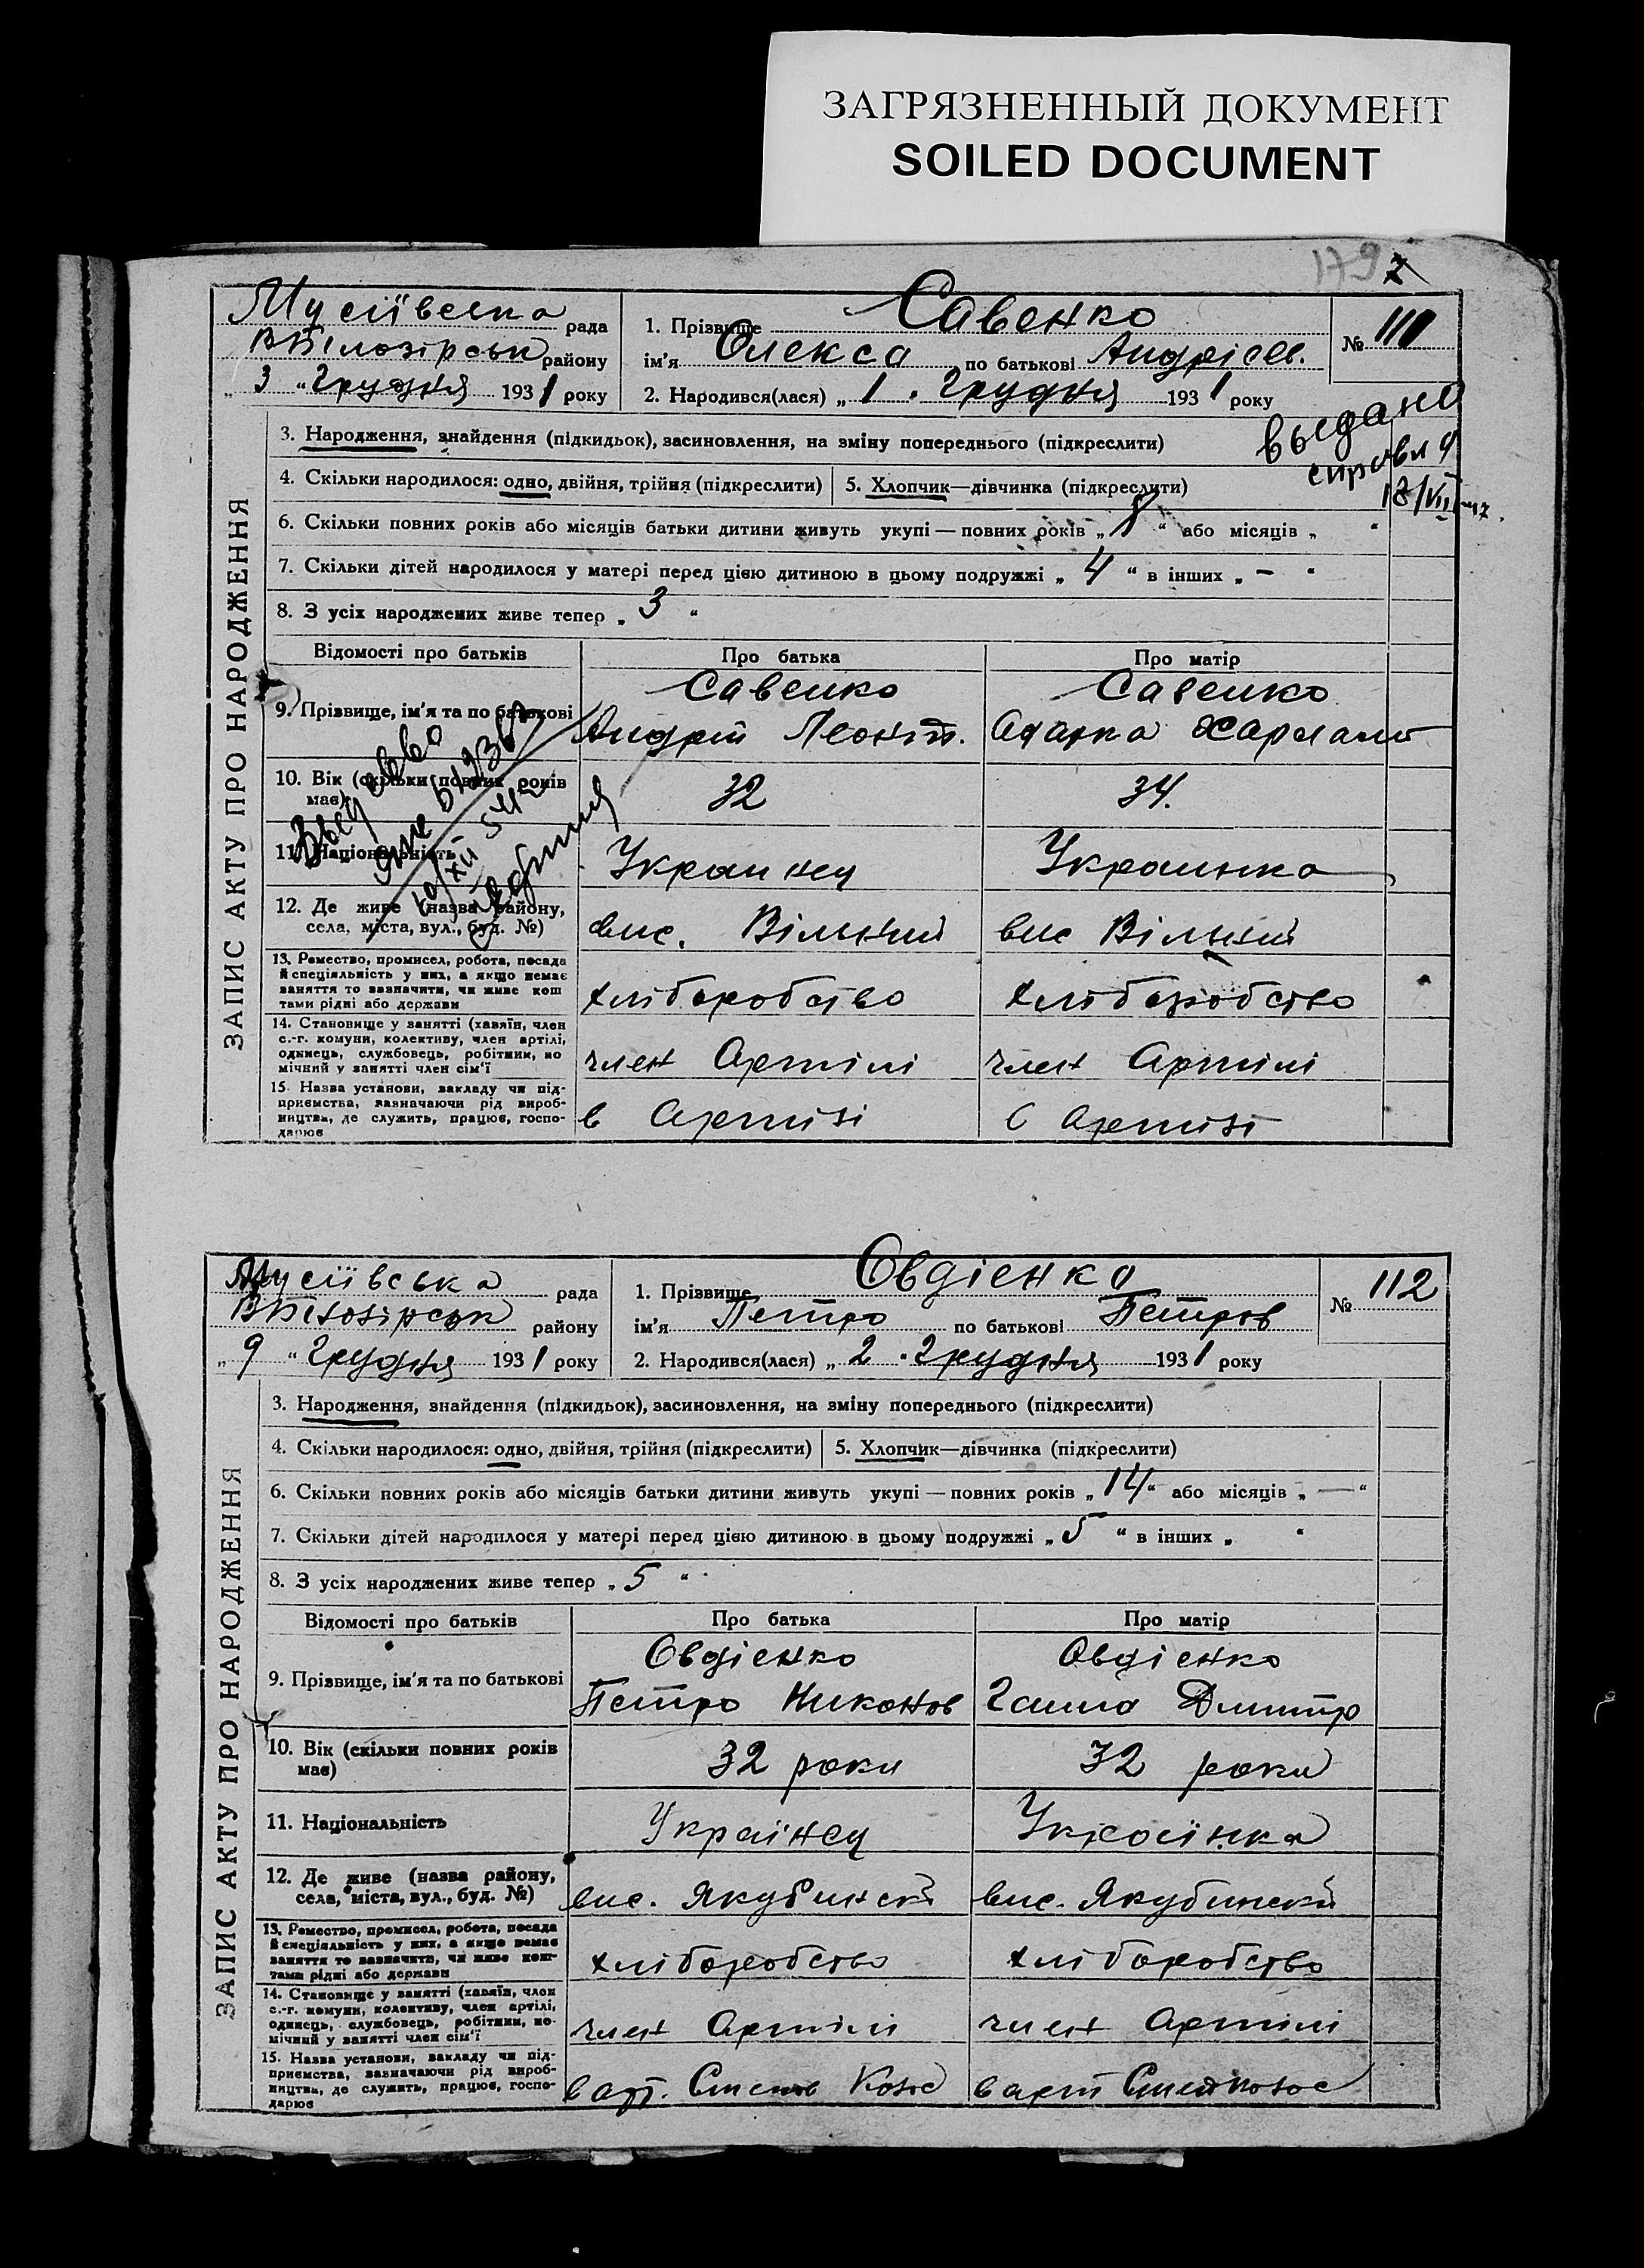 ЗАГРЯЗНЕННЫЙ ДОКУМЕНТ
SOILED DOCUMENT
179
ЗАПИС АКТУ ПРО НАРОДЖЕННЯ
Мусіївська рада
ВБілозірськ району
„ 3 “ Грудня 1931 року
1. Прізвище Савенко
ім'я Олекса по батькові Андрієв.
2. Народився(лася) „ 1 “ Грудня 1931 року
№ 111
выдано
справка
18/VII
3. Народження, знайдення (підкидьок), засиновлення, на зміну попереднього (підкреслити)
4. Скільки народилося: одно, двійня, трійня (підкреслити)
5. Хлопчик—дівчинка (підкреслити)
6. Скільки повних років або місяців батьки дитини живуть укупі — повних років „ “ або місяців „ “
7. Скільки дітей народилося у матері перед цією дитиною в цьому подружжі „ 4 “ в інших „ — “
8. З усіх народжених живе тепер „ 3 “
Відомості про батьків
Про батька
Про матір
9. Прізвище, ім'я та по батькові
Савенко
Андрій Леонт.
Савенко
Одарка Харламо
10. Вік (скільки повних років має)
32
34.
11. Національність
Украинец
Украинка
12. Де живе (назва району, села, міста, вул., буд. №)
вис. Вільний
вис Вільний
13. Ремество, промисел, робота, посада
й спеціяльність у них, а якщо немає
заняття то зазначити, чи живе кош
тами рідні або держави
хліборобство
хліборобство
14. Становище у занятті (хазяїн, член
с.-г. комуни, колективу, член артілі,
одинець, службовець, робітник, по
мічний у занятті член сім'ї
член Артілі
член Артілі
15. Назва установи, закладу чи під-
приємства, зазначаючи рід вироб-
ництва, де служить, працює, госпо-
дарює
в Артізі
в Артізі
ЗАПИС АКТУ ПРО НАРОДЖЕННЯ
Мусіївська рада
ВБілозірськ району
„ 9 “ Грудня 1931 року
1. Прізвище Овдієнко
ім'я Петро по батькові Петров
2. Народився(лася) „ 2 “ Грудня 1931 року
№ 112
3. Народження, знайдення (підкидьок), засиновлення, на зміну попереднього (підкреслити)
4. Скільки народилося: одно, двійня, трійня (підкреслити)
5. Хлопчик—дівчинка (підкреслити)
6. Скільки повних років або місяців батьки дитини живуть укупі — повних років „ 14 “ або місяців „ — “
7. Скільки дітей народилося у матері перед цією дитиною в цьому подружжі „ 5 “ в інших „ “
8. З усіх народжених живе тепер „ 5 “
Відомості про батьків
Про батька
Про матір
9. Прізвище, ім'я та по батькові
Овдієнко
Петро Никонов
Овдієнко
Ганна Дмитр
10. Вік (скільки повних років має)
32 роки
32 роки
11. Національність
Українец
Українка
12. Де живе (назва району, села, міста, вул., буд. №)
вис. Якубинскй
вис. Якубинскй
13. Ремество, промисел, робота, посада
й спеціяльність у них, а якщо немає
заняття то зазначити, чи живе кош-
тами рідні або держави
хліборобство
хліборобство
14. Становище у занятті (хазяїн, член
с.-г. комуни, колективу, член артілі,
одинець, службовець, робітник, по-
мічний у занятті член сім'ї
член Артілі
член Артілі
15. Назва установи, закладу чи під-
приємства, зазначаючи рід вироб-
ництва, де служить, працює, госпо-
дарює
в арт.
в арт